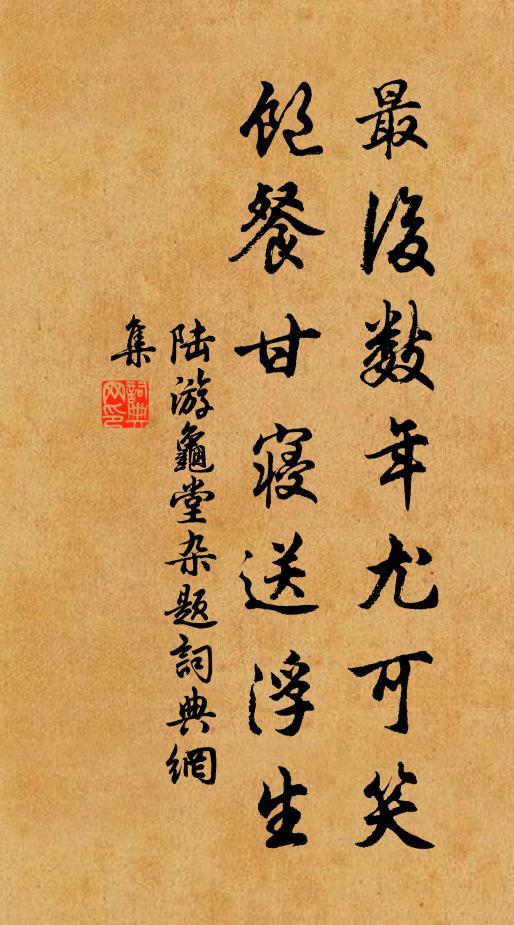 最後數年尤可笑
飽餐甘寢送浮生
陆游龜堂杂題詞典網
集
詞典
网印